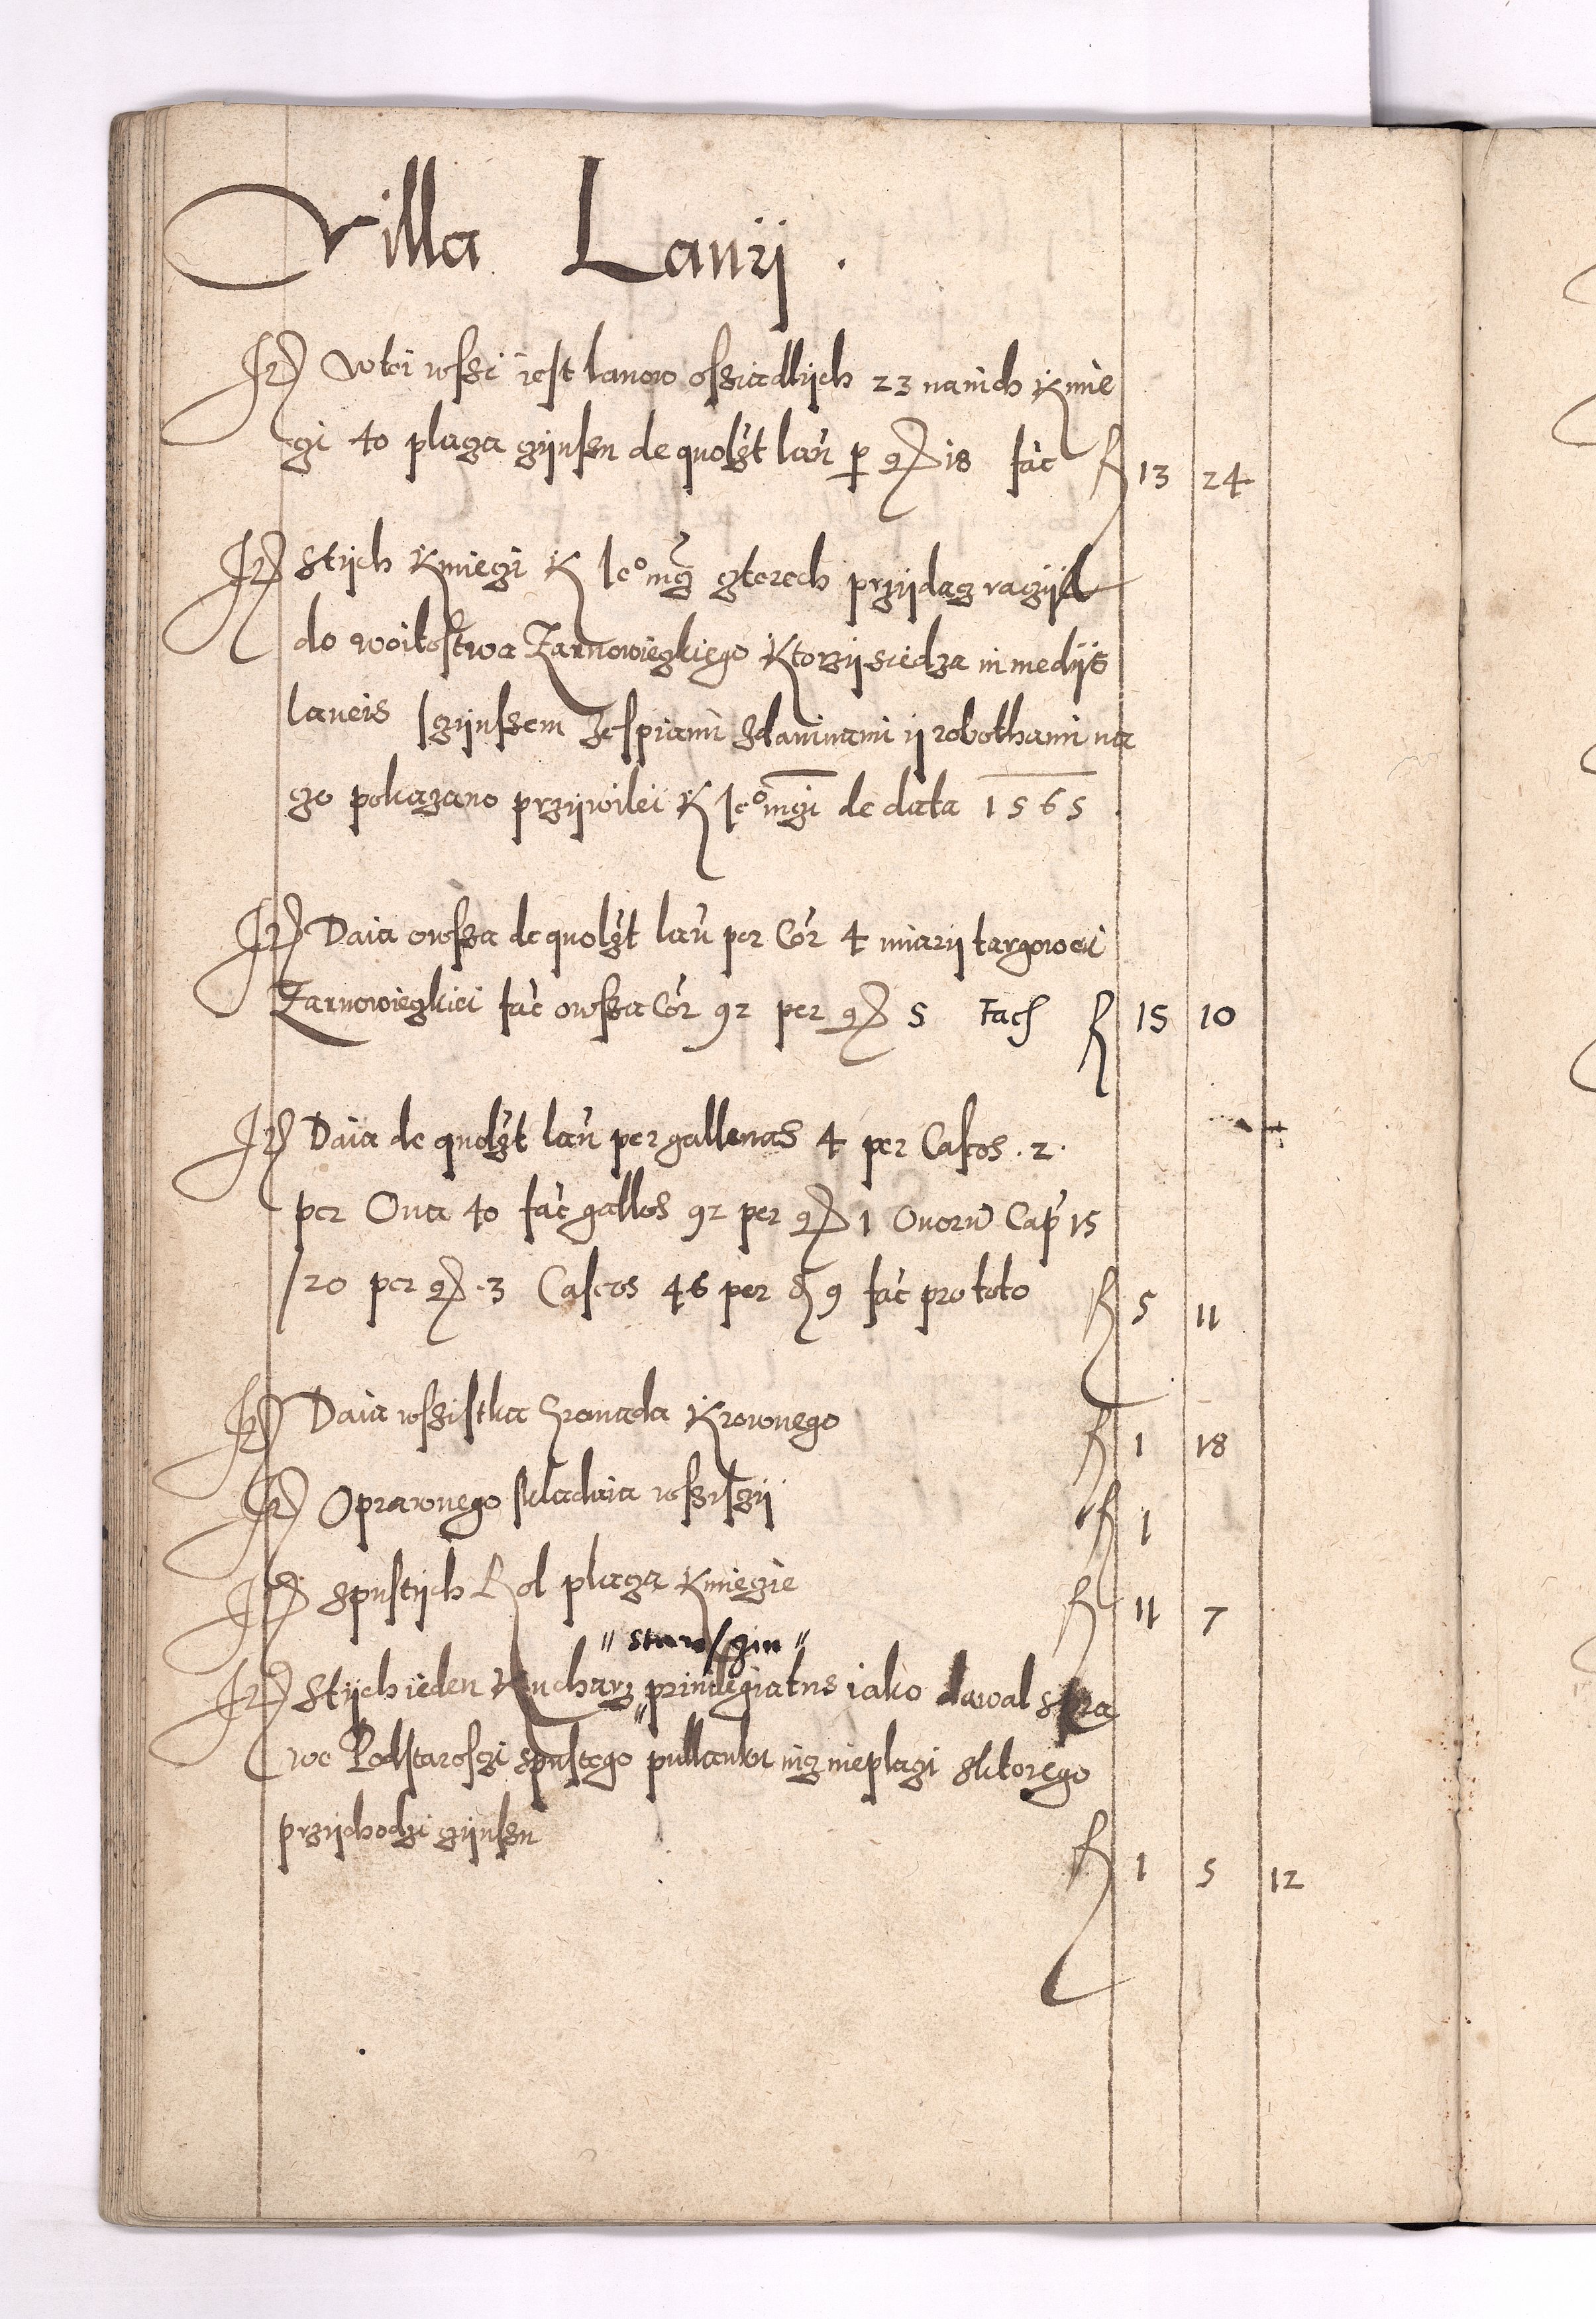 Villa Lanij .
It. Wtei wssi iest lanow osziadlijch 23 nanich Kmie
czi 40 placza czijnszu de quolibt lan per gr 18 fac R 13 24
It. Stijch Kmieczi K Je° mcz czterech przijdacz raczijl
do woitostwa Zarnowieczkiego Ktorzij siedza in medijs
laneis sczijnszem zespiami zdaninami ij robothami na
czo pokazano przijwilei K Je° mczi de data 1565 .
It. Daia owsza de quolibt lan per Cor 4 miarij targowei
Zarnowieczkiei fac owsza Cor 92 per gr 5 Fach R 15 10
It. Daia de quolibt lan per gallenas 4 per Caseos . 2 .
per Oua 40 fac gallos 92 per gr 1 Ouoru Cap 15
/20 per gr . 3 Caseos 46 per d 9 fac pro toto R 5 11
It. Daia wszistka Gromada Krownego R 1 18
It. Oprawnego skladaia wszisczij R 1
It. Spustijch Rol placza Kmieczie R 11 7
" starosczin "
It. Stijch ieden Kucharz " priuilegiatus iako dawal spra
we Podstarosczi spustego pullanku nicz nieplaczi sktorego
przijchodzi czijnszu R 1 5 12